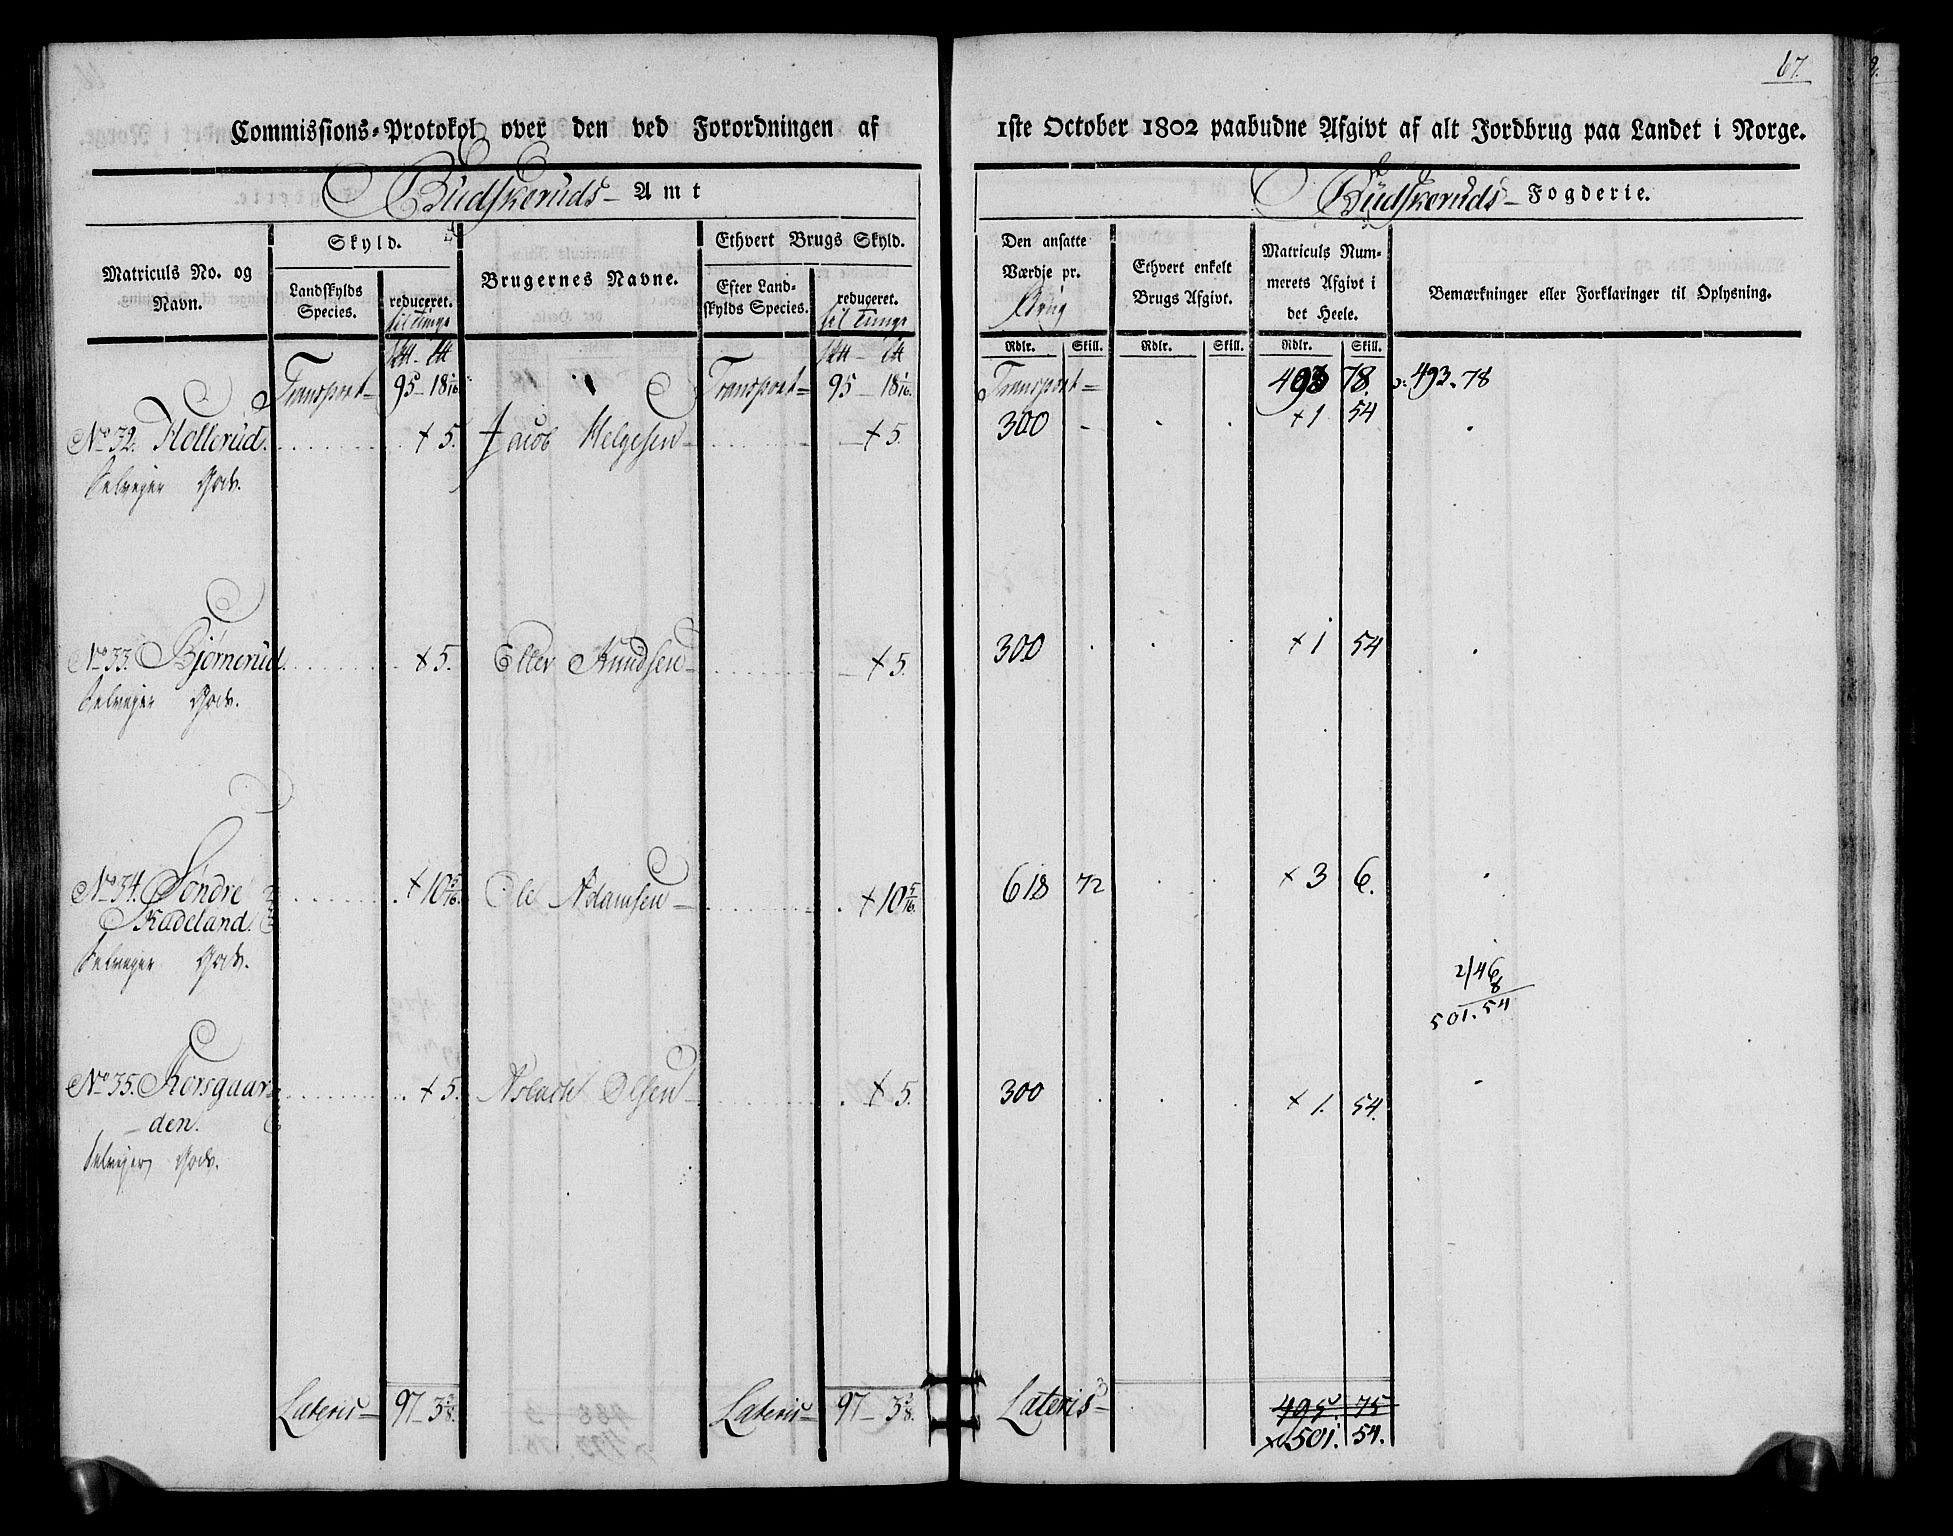 67.
Commissions-Protokol over den ved Forordningen af 1ste October 1802 paabudne Afgivt af alt Jordbrug paa Landet i Norge.
Budskeruds- Amt Budskeruds- Fogderie.
Matriculs No. og Navn.
Skyld.
Landskylds Species.
reduceret. til Tunge
Brugernes Navne.
Ethvert Brugs Skyld.
Efter Landskylds Species.
reduceret. til Tunge
Den ansatte Værdie pr. Brug
Ethvert enkelt Brugs Afgivt.
Matriculs Nummerets Afgivt i det Heele.
Bemærkninger eller Forklaringer til Oplysning.
Rdlr. Skill. Rdlr. Skill. Rdlr. Skill.
Transport= 95-18 1/16. Transport= 95-18 1/16. Transport= 493 78. 493.78
No 32. Hellerud. + 5. Jacob Helgesen - + 5. 300 - +1 54
Selvejer Gods.
No 33 Bjørnerud. + 5. Knudsen - + 5. 300 . +1 54
Selvejer Gods.
No 34. Søndre Kadeland. + 10 5/16. Ole Adamsen - + 10 5/16. 618 72 +3 6.
Selvejer Gods.
2/46
8
501.54
No 35. Korsgaar-
den. + 5. Aslach Olsen - + 5. 300 . +1. 54.
Selvejer Gods.
Lateris- 97-3 3/8. Lateris- 97-3 3/8. Lateris- 495. 75
501. 54.